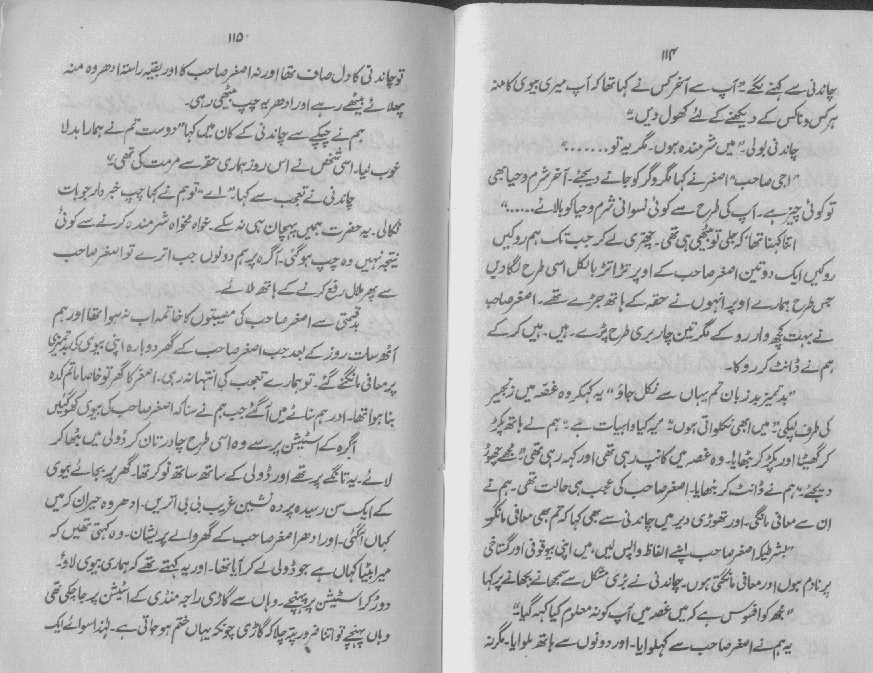 ۱۱۴
چاندنی سے کہنے لگے۔" آپ سے آخر کس نے کہا تھا کہ آپ میری بیوی کا منہ
ہر کس و ناکس کے دیکھنے کے لئے کھول دیں۔"
چاندنی بولی۔" میں شرمندہ ہوں۔ مگر یہ تو ......."
"اجی صاحب" اصغر نے کہا مگر وگر کو جانے دیجئے۔ آخر شرم و حیا بھی
تو کوئی چیز ہے۔ آپ کی طرح سے کوئی نسوانی شرم و حیا کو بالائے ....."
اتنا کہنا تھا کہ جلی تو بیٹھی ہی تھی۔ چھتری لے کر جب تک ہم روکیں
روکیں ایک دو تین اصغر صاحب کے اوپر تڑا تڑ بالکل اسی طرح لگا دیں
جس طرح ہمارے اوپر انہوں نے حقہ کے ہاتھ جڑے تھے۔ اصغر صاحب
نے بہت کچھ وار روکے مگر تین چار بری طرح پڑے۔ ہیں۔ ہیں کر کے
ہم نے ڈانٹ کر روکا۔
"بدتمیز بد زبان تم یہاں سے نکل جاؤ" یہ کہہ کر وہ غصہ میں زنجیر
کی طرف لپکی" میں ابھی نکلواتی ہوں" "یہ کیا واہیات ہے" ہم نے ہاتھ پکڑ
کر گھسیٹا اور پکڑ کر بٹھایا۔ وہ غصہ میں کانپ رہی تھی اور کہہ رہی تھی" مجھے چھوڑ
دیجئے" ہم نے ڈانٹ کر بٹھایا۔ اصغر صاحب کی عجب ہی حالت تھی۔ ہم نے
ان سے معافی مانگی۔ اور تھوڑی دیر میں چاندنی سے بھی کہا کہ تم بھی معافی مانگو
"بشرطیکہ اصغر صاحب اپنے الفاظ واپس لیں، میں اپنی بیوقوفی اور گستاخی
پر نادم ہوں اور معافی مانگتی ہوں۔ چاندنی نے بڑی مشکل سے سمجھانے بجھانے پر کہا
"مجھ کو افسوس ہے کہ میں غصہ میں آپ کو نہ معلوم کیا کہہ گیا۔"
یہ ہم نے اصغر صاحب سے کہلوایا۔ اور دونوں سے ہاتھ ملوایا۔ مگر نہ
۱۱۵
تو چاندنی کا دل صاف تھا اور نہ اصغر صاحب کا اور بقیہ راستہ ادھر وہ منہ
پھلائے بیٹھے رہے اور ادھر یہ چپ بیٹھی رہی۔
ہم نے چپکے سے چاندنی کے کان میں کہا "دوست تم نے ہمارا بدلا
خوب لیا۔ اسی شخص نے اس روز ہماری حقہ سے مرمت کی تھی۔"
چاندنی نے تعجب سے کہا۔" اے" تو ہم نے کہا چپ خبردار جو بات
نکالی۔ یہ حضرت ہمیں پہچان ہی نہ سکے۔ خواہ مخواہ شرمندہ کرنے سے کوئی
نتیجہ نہیں وہ چپ ہو گئی۔ آگرہ پر ہم دونوں جب اترے تو اصغر صاحب
سے پھر ملال رفع کرنے کے ہاتھ ملائے
بدقسمتی سے اصغر صاحب کی مصیبتوں کا خاتمہ اب نہ ہوا تھا اور ہم
آٹھ سات روز کے بعد جب اصغر صاحب کے گھر دوبارہ اپنی بیوی کی بدتمیزی
پر معافی مانگنے گئے۔ تو ہمارے تعجب کی انتہا نہ رہی۔ اصغر کا گھر تو خاصا ماتم کدہ
بنا ہوا تھا۔ اور ہم سناٹے میں آ گئے جب ہم نے سنا کہ اصغر صاحب کی بیوی کھو گئیں
آگرہ کے اسٹیشن پر سے وہ اسی طرح چادر تان کر ڈولی میں بٹھا کر
لائے۔ یہ تانگے پر تھے اور ڈولی کے ساتھ ساتھ نوکر تھا۔ گھر پر بجائے بیوی
کے ایک سن رسیدہ پردہ نشین غریب بی بی اتریں۔ ادھر وہ حیران کہ میں
کہاں آ گئی۔ اور ادھر اصغر صاحب کے گھر والے پریشان۔ وہ کہتی تھیں کہ
میرا بیٹا کہاں ہے جو ڈولی لے کر آیا تھا۔ اور یہ کہتے تھے کہ ہماری بیوی لاؤ۔
دوڑ کر اسٹیشن پر پہنچے۔ وہاں سے گاڑی راجہ منڈی کے اسٹیشن پر جا چکی تھی
وہاں پہنچے تو اتنا ضرور پتہ چلا کہ گاڑی چونکہ یہاں ختم ہو جاتی ہے۔ لہٰذا سوائے ایک